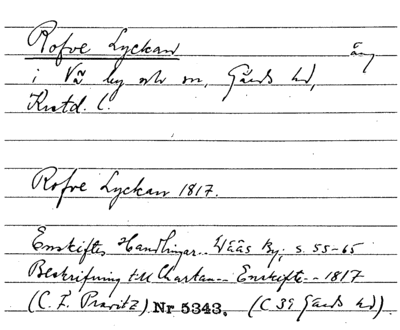 Rofve Lyckan äng
i Vä by och sn, Gärds hd,
Krstd. l.
Rofve Lyckan 1817.
Enskiftes Handlingar.. Wääs By; s. 55-65
Beskrifning till Chartan-- Enskifte-- 1817
(C. F. Pravitz) Nr 5343. (C 39 Gärds hd).